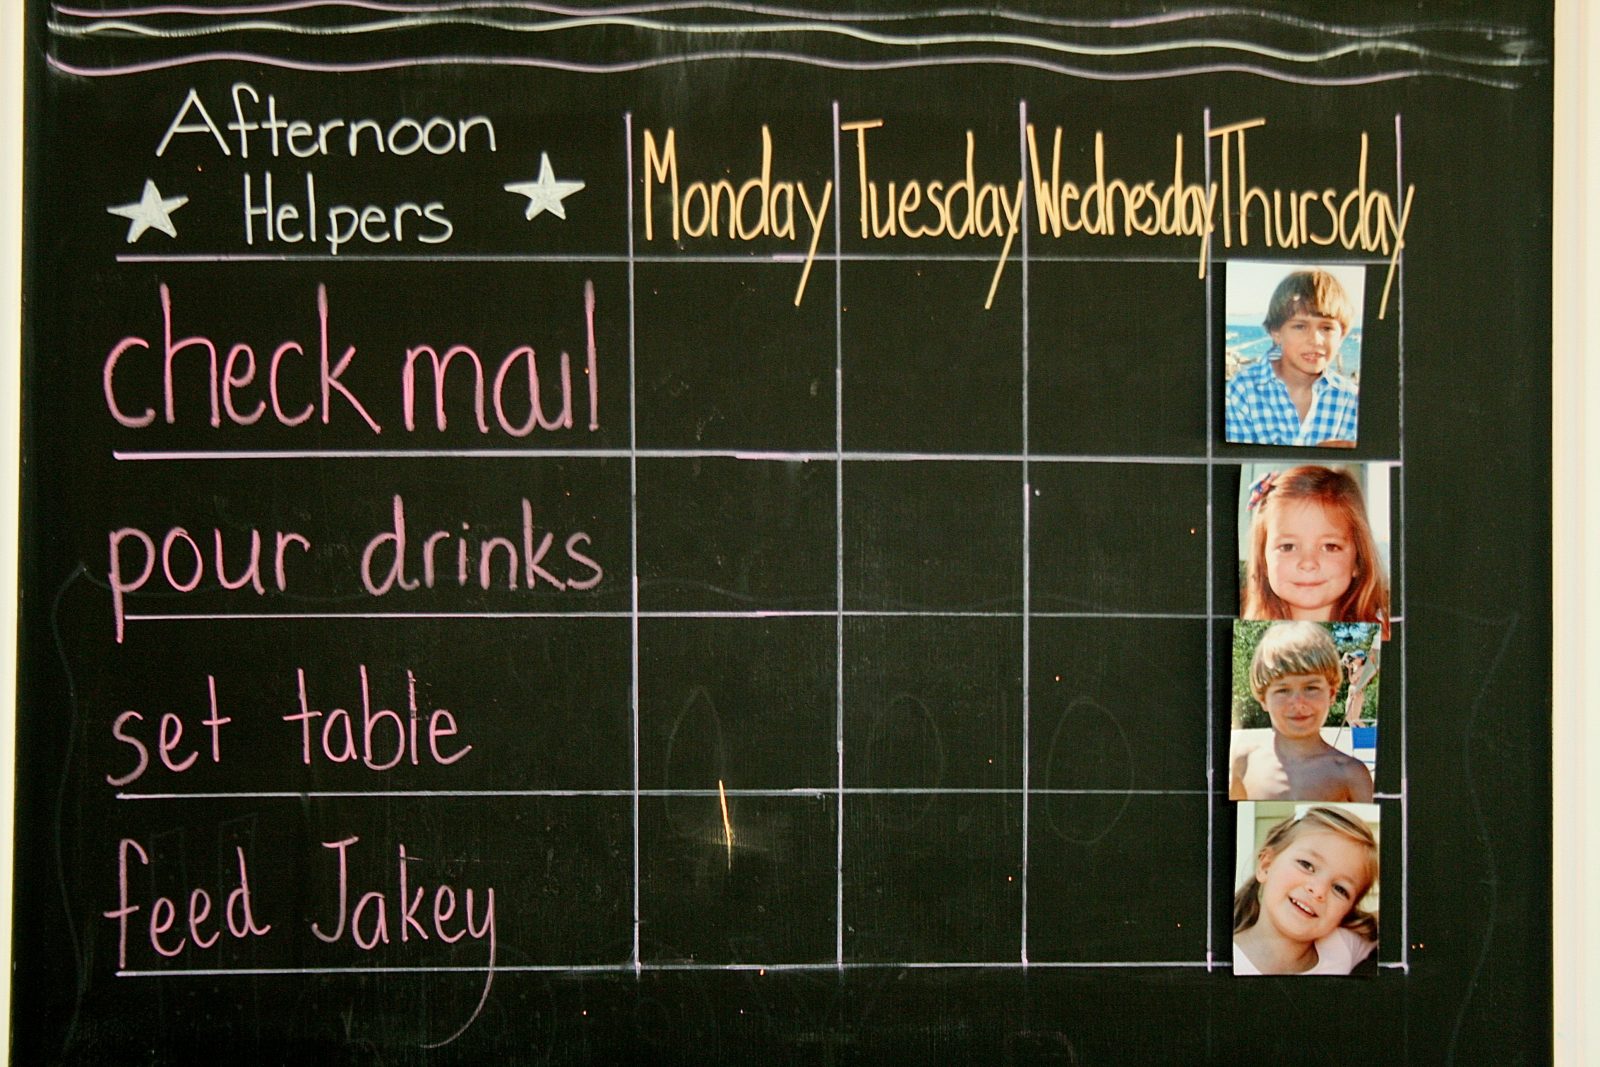 Afternoon
Helpers
Monday Tuesday Wednesday Thursday
check mail
pour drinks
set table
feed Jakey